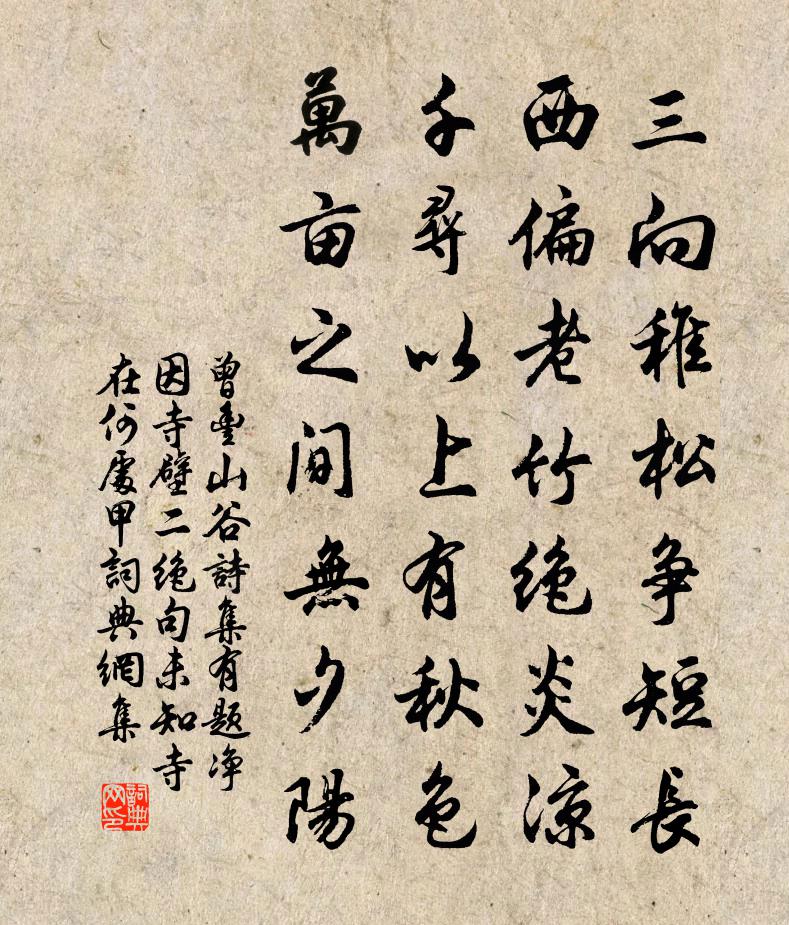 三向稚松争短長
西偏老竹绝炎凉
千尋以上有秋色
萬亩之间無夕陽
曾豐山谷詩集有题净
因寺壁二绝句未知寺
在何處甲詞典網集
詞典
网印